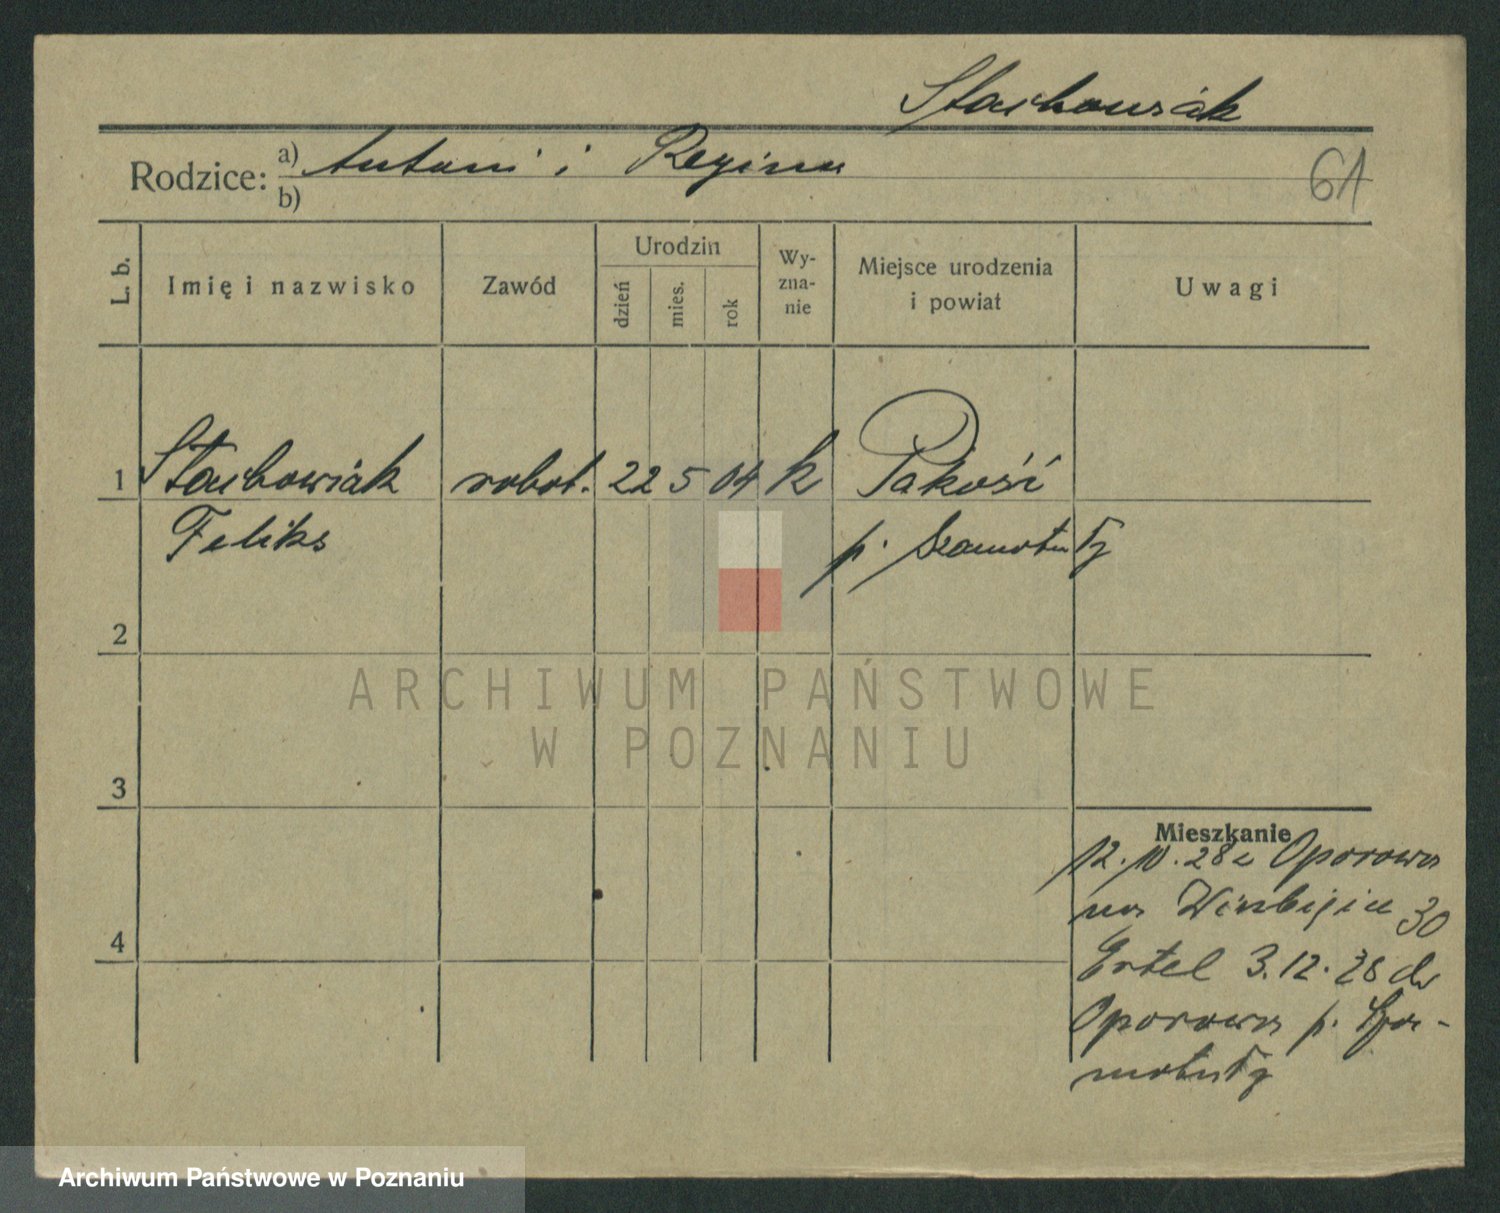 Stachowiak
Rodzice: a) Antoni i Regina
b)
61
L. b.
Imię i nazwisko
Zawód
Urodzin
dzień
mies.
rok
Wy-
zna-
nie
Miejsce urodzenia
i powiat
Uwagi
1 Stachowiak robot. 22 5 04 k Pakość
Feliks p. Szamotuły
2
3
4
Mieszkanie
12.10.28 z Oporowa
na 30
Ertel 3.12.28 do
Oporowa p. Sza-
motuły
ARCHIWUM PAŃSTWOWE
W POZNANIU
Archiwum Państwowe w Poznaniu